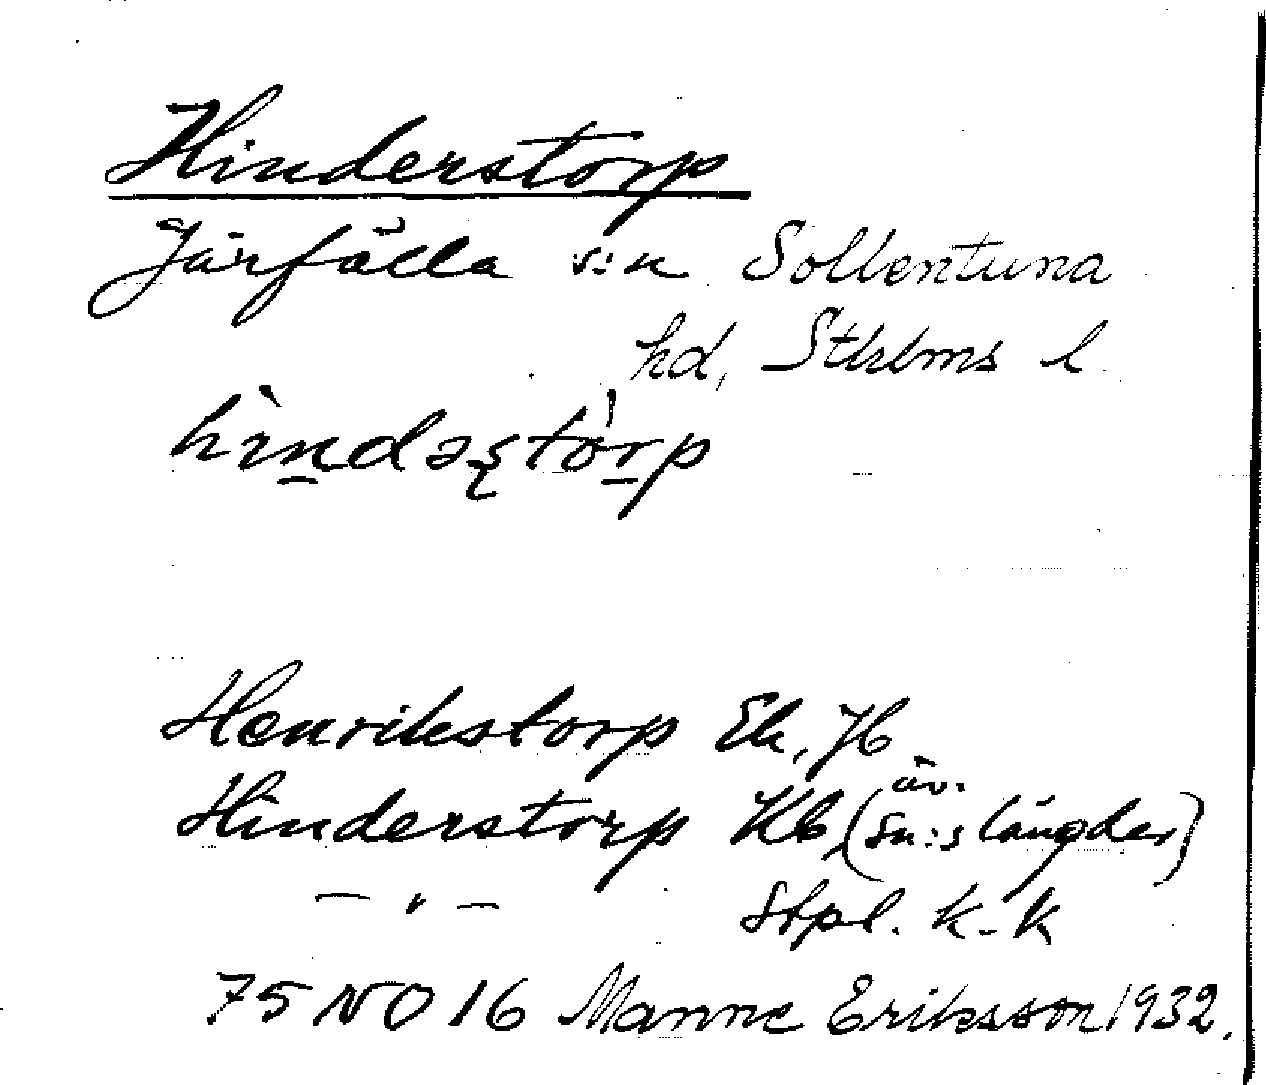 Hinderstorp
Järfälla s:n Sollentuna
hd, Sthlms l
hìndəʂtórp
Henrikstorp Ek, Jb
Hinderstorp Kb, (äv. sn:s längder)
— " — Stpl. k-k
75 NO 16 Manne Eriksson 1932.